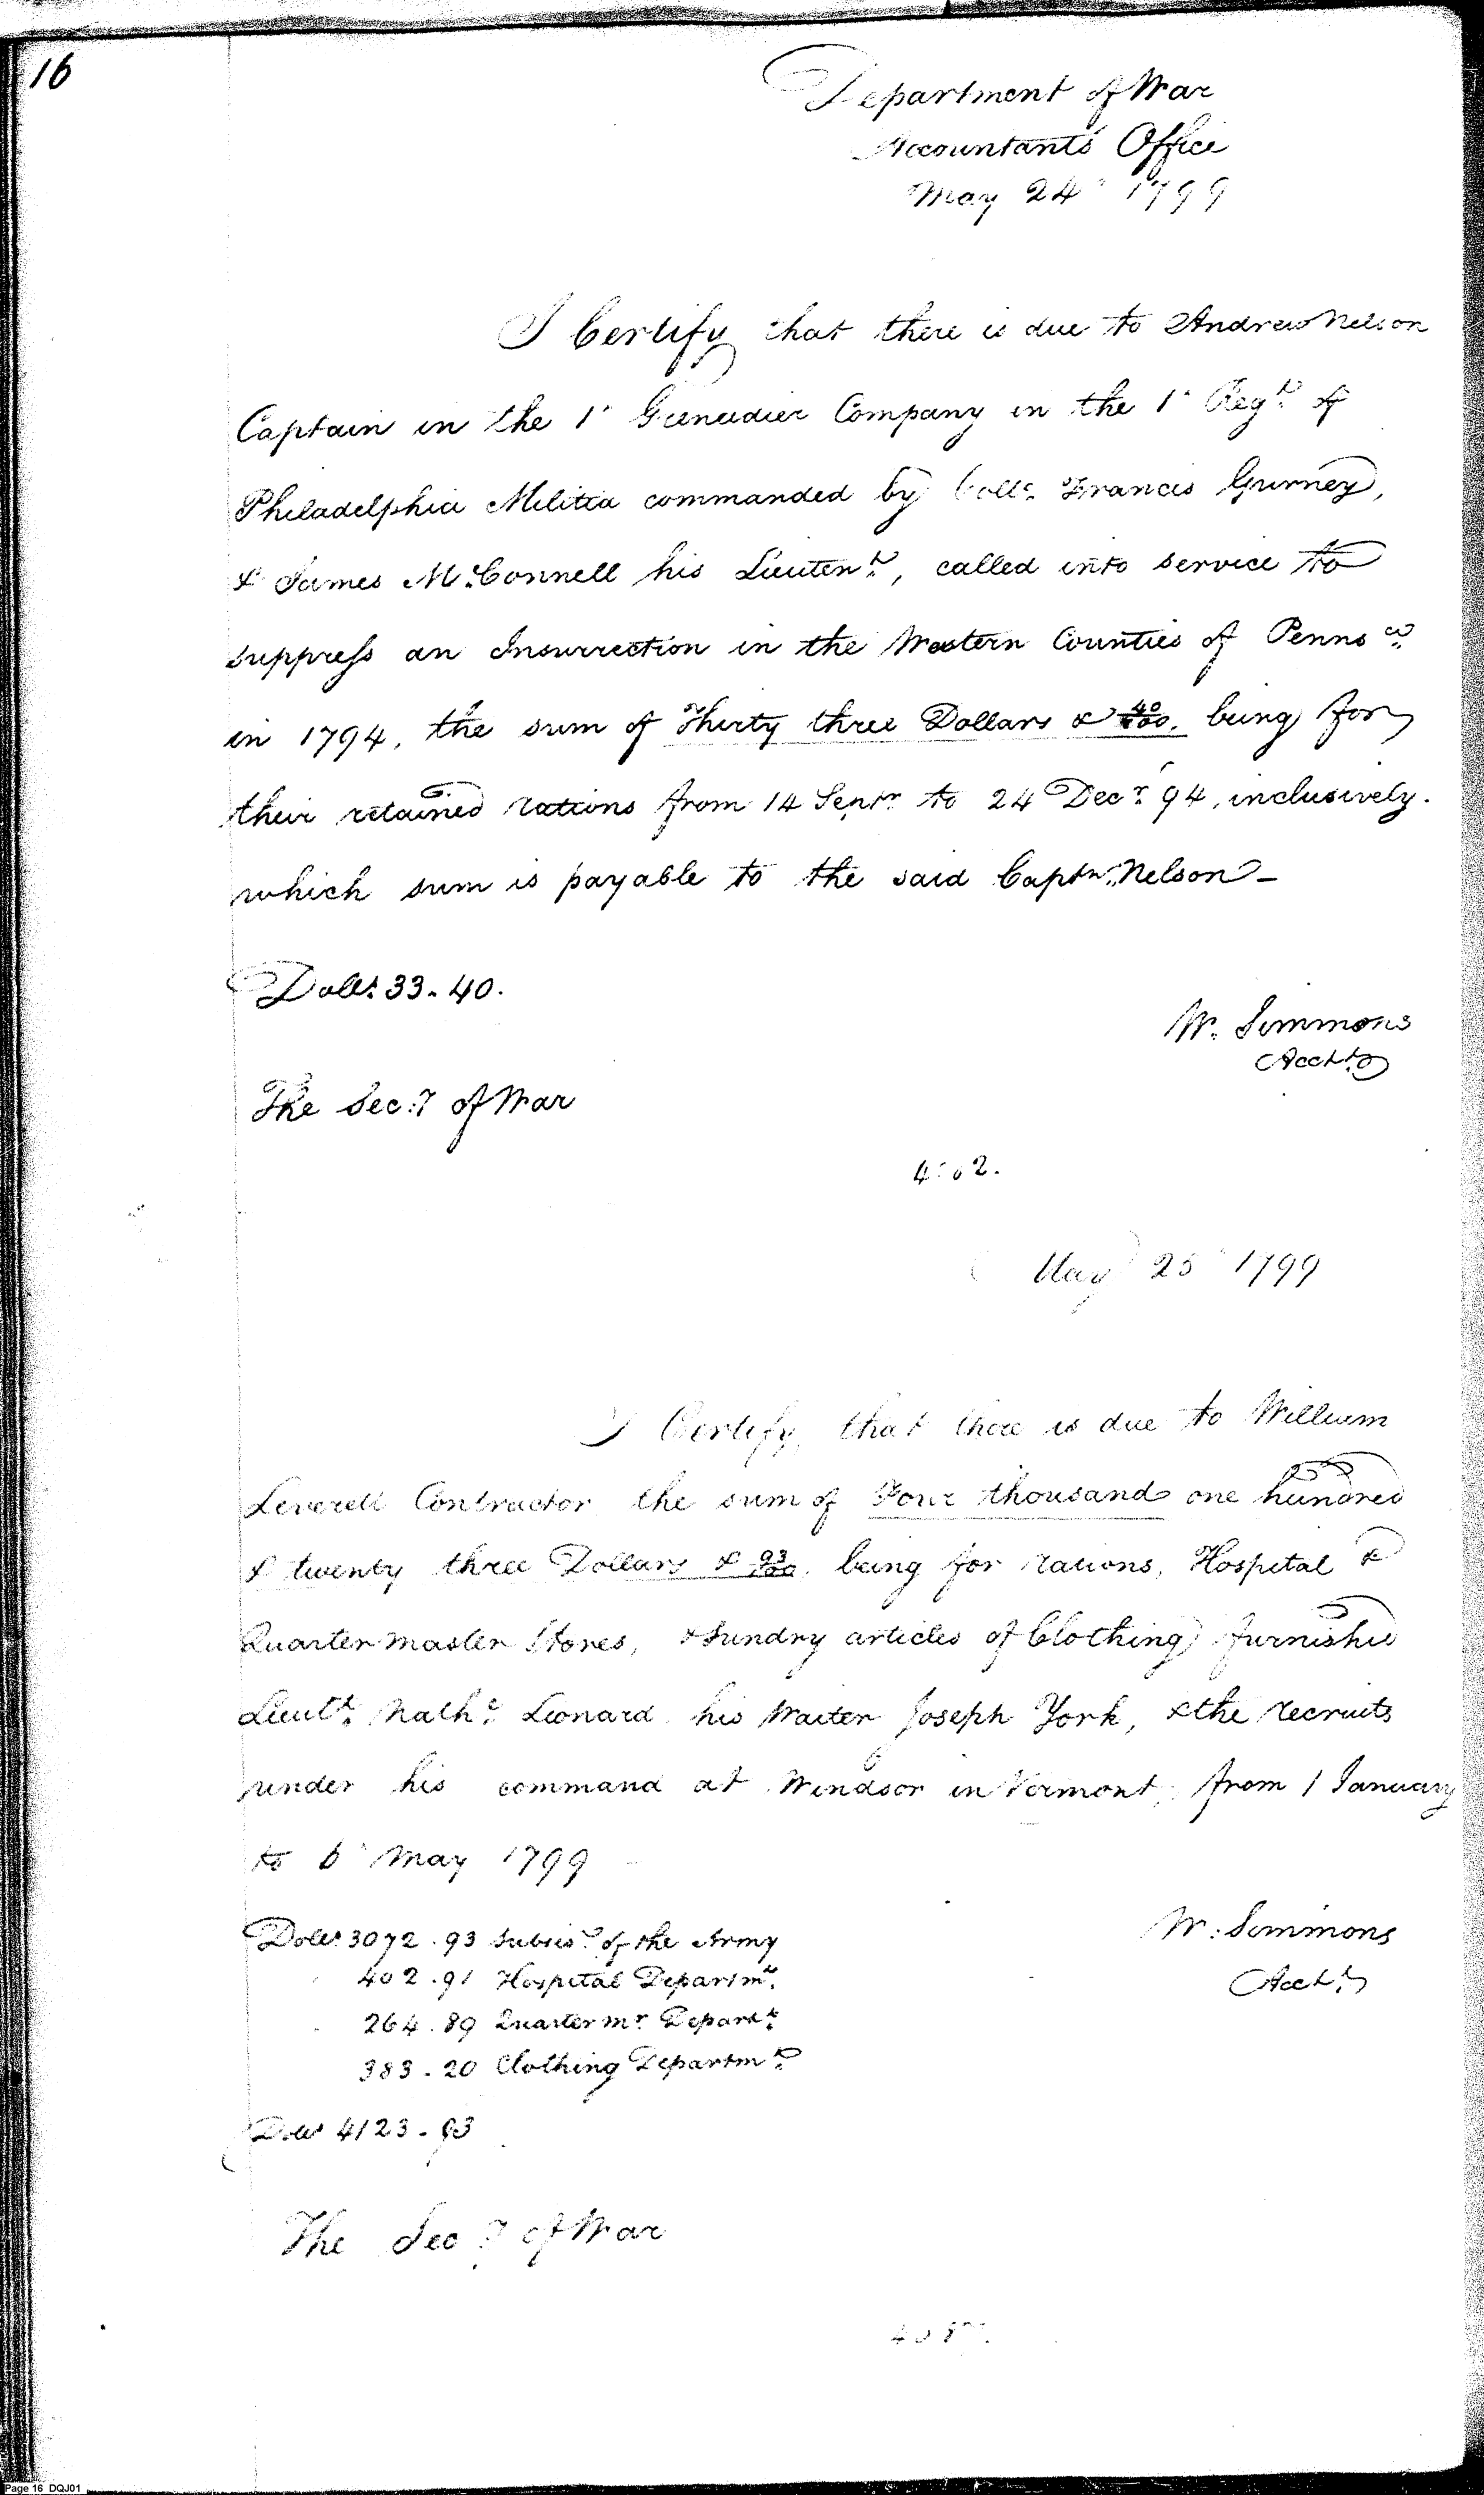 16
Department of War
Accountants Office
May 24 1799
I Certify that there is due to Andrew Nelson
Captain in the 1t Grenadier Company in the 1t Regt. of
Philadelphia Militia commanded by Collo. Francis Gurney,
& James McConnell his Lieutent., called into service to
suppress an Insurrection in the Western Counties of Pennsa.
in 1794, the sum of Thirty three Dollars & 40/100. being for
their retained rations from 14 Septr. to 24 Decr. 94, inclusively.
which sum is payable to the said Captn. Nelson -
Dolls. 33. 40.
W. Simmons
Acct.
The Secy. of War
May 25 1799
I Certify that there is due to William
Leverett Contractor the sum of Four thousand one hundred
& twenty three Dollars & 93/100. being for rations, Hospital &
Quarter master Stores, & sundry articles of Clothing furnished
Lieutt. Nathl. Leonard his Waiter Joseph York, & the recruits
under his command at Windsor in Vermont, from 1 January
to 6 May 1799
Dolls. 3072. 93 Subsis. of the Army
402. 91 Hospital Departmt.
264. 89 Quarter mr. Depart.
383. 20 Clothing Departmt.
Dolls 4123. 93
W. Simmons
Acct.
The Secy. of War
Page 16 DQJ01